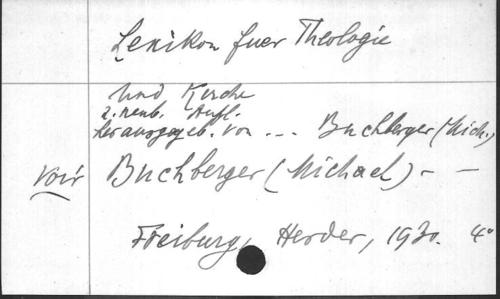 Lexikon fuer Theologie
und Kirche
2. neub. Aufl.
herausgegeb. von ... Buchberger (Mich.)
voir Buchberger (Michael) - -
Freiburg, Herder, 1930. 4°